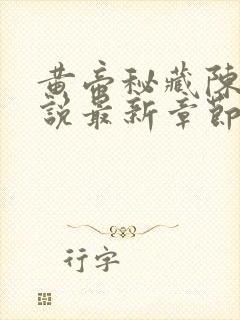 黄帝秘藏陈
說最新章節
行字